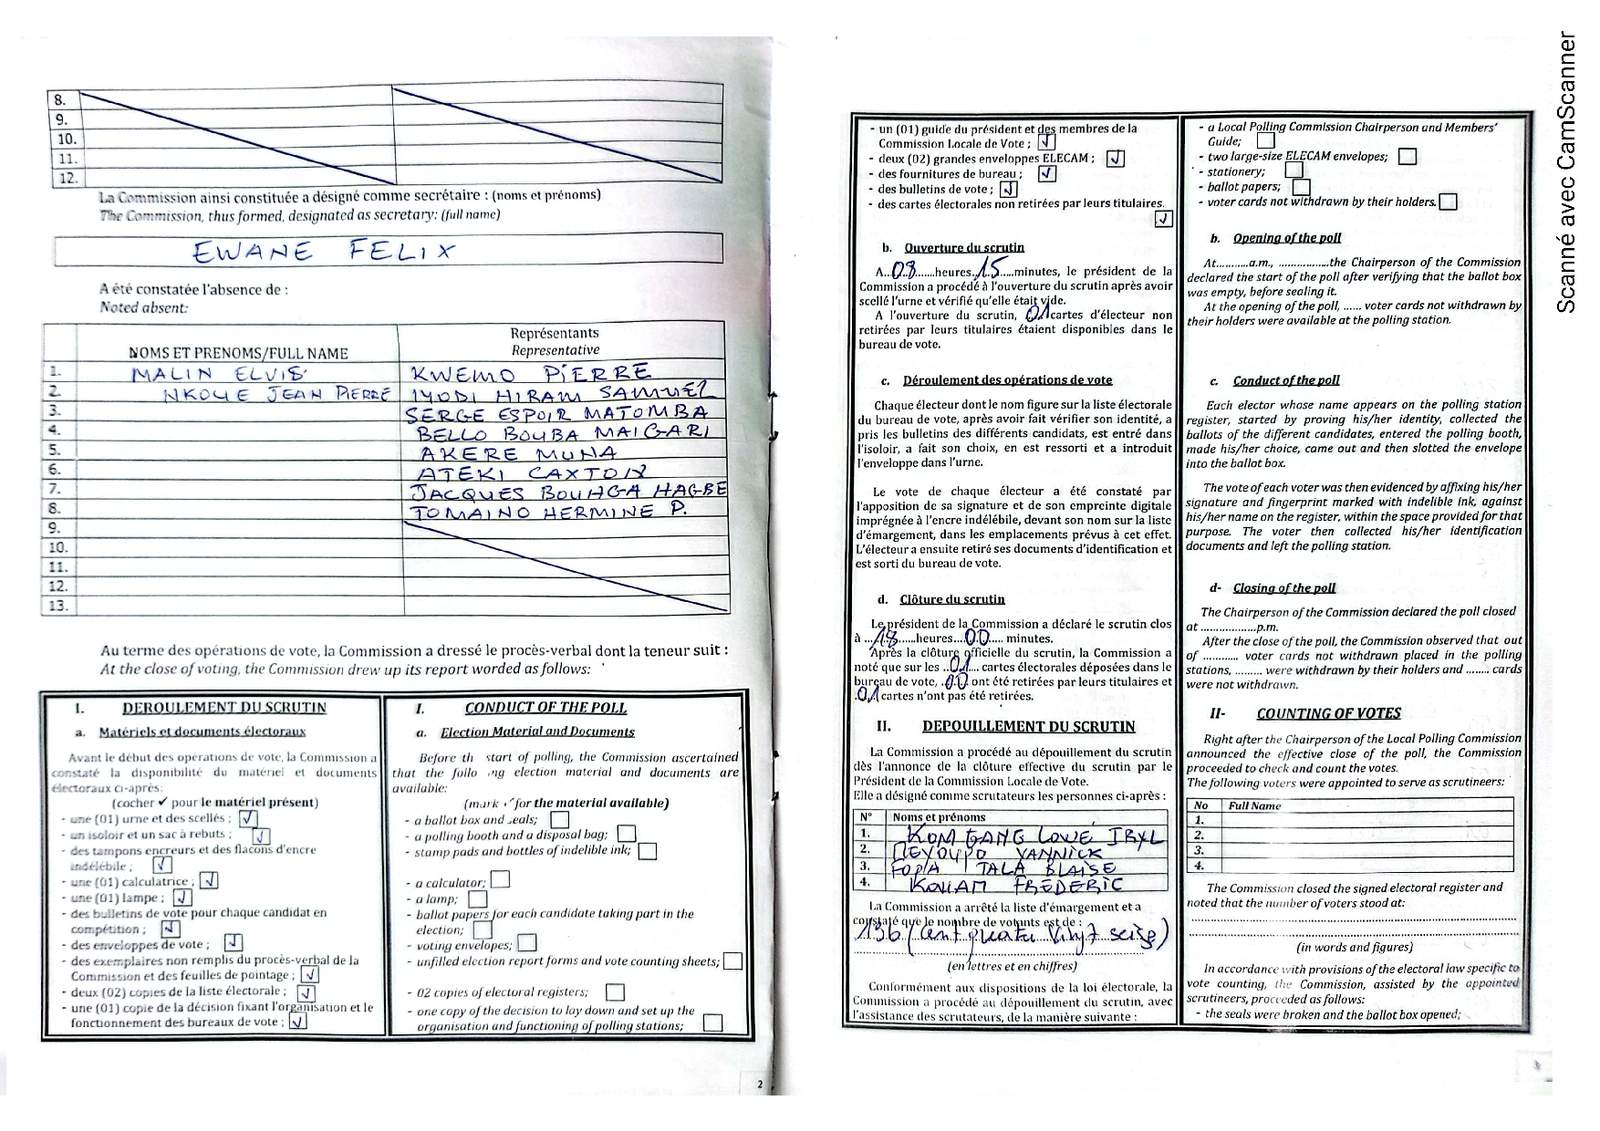 8.
9.
10.
11.
12.
La Commission ainsi constituée a désigné comme secrétaire : (noms et prénoms)
The Commission, thus formed, designated as secretary: (full name)
EWANE FELIX
A été constatée l'absence de :
Noted absent:
NOMS ET PRENOMS/FULL NAME
Représentants
Representative
1. MALIN ELVIS KWEMO PIERRE
2. NKOUE JEAN PIERRE IYODI HIRAM SAMUEL
3. SERGE ESPOIR MATOMBA
4. BELLO BOUBA MAIGARI
5. AKERE MUNA
6. ATEKI CAXTON
7. JACQUES BOUHGA HAGBE
8. TOMAINO HERMINE P.
9.
10.
11.
12.
13.
Au terme des opérations de vote, la Commission a dressé le procès-verbal dont la teneur suit :
At the close of voting, the Commission drew up its report worded as follows:
I. DEROULEMENT DU SCRUTIN
a. Matériels et documents électoraux
Avant le début des opérations de vote, la Commission a
constaté la disponibilité du matériel et documents
électoraux ci-après:
(cocher ✓ pour le matériel présent)
- une (01) urne et des scellés ; ✓
- un isoloir et un sac à rebuts ; ✓
- des tampons encreurs et des flacons d'encre
indélébile ; ✓
- une (01) calculatrice ; ✓
- une (01) lampe ; ✓
- des bulletins de vote pour chaque candidat en
compétition ; ✓
- des enveloppes de vote ; ✓
- des exemplaires non remplis du procès-verbal de la
Commission et des feuilles de pointage ; ✓
- deux (02) copies de la liste électorale ; ✓
- une (01) copie de la décision fixant l'organisation et le
fonctionnement des bureaux de vote ; ✓
I. CONDUCT OF THE POLL
a. Election Material and Documents
Before th start of polling, the Commission ascertained
that the follo ng election material and documents are
available:
(mark ✓ for the material available)
- a ballot box and seals;
- a polling booth and a disposal bag;
- stamp pads and bottles of indelible ink;
- a calculator;
- a lamp;
- ballot papers for each candidate taking part in the
election;
- voting envelopes;
- unfilled election report forms and vote counting sheets;
- 02 copies of electoral registers;
- one copy of the decision to lay down and set up the
organisation and functioning of polling stations;
2
- un (01) guide du président et des membres de la
Commission Locale de Vote ; ✓
- deux (02) grandes enveloppes ELECAM ; ✓
- des fournitures de bureau ; ✓
- des bulletins de vote ; ✓
- des cartes électorales non retirées par leurs titulaires.
✓
b. Ouverture du scrutin
A..08......heures..15.....minutes, le président de la
Commission a procédé à l'ouverture du scrutin après avoir
scellé l'urne et vérifié qu'elle était vide.
A l'ouverture du scrutin, 01 cartes d'électeur non
retirées par leurs titulaires étaient disponibles dans le
bureau de vote.
c. Déroulement des opérations de vote
Chaque électeur dont le nom figure sur la liste électorale
du bureau de vote, après avoir fait vérifier son identité, a
pris les bulletins des différents candidats, est entré dans
l'isoloir, a fait son choix, en est ressorti et a introduit
l'enveloppe dans l'urne.
Le vote de chaque électeur a été constaté par
l'apposition de sa signature et de son empreinte digitale
imprégnée à l'encre indélébile, devant son nom sur la liste
d'émargement, dans les emplacements prévus à cet effet.
L'électeur a ensuite retiré ses documents d'identification et
est sorti du bureau de vote.
d. Clôture du scrutin
Le président de la Commission a déclaré le scrutin clos
à ...18......heures...00.... minutes.
Après la clôture officielle du scrutin, la Commission a
noté que sur les ..01... cartes électorales déposées dans le
bureau de vote, .00. ont été retirées par leurs titulaires et
.01 cartes n'ont pas été retirées.
II. DEPOUILLEMENT DU SCRUTIN
La Commission a procédé au dépouillement du scrutin
dès l'annonce de la clôture effective du scrutin par le
Président de la Commission Locale de Vote.
Elle a désigné comme scrutateurs les personnes ci-après :
N° Noms et prénoms
1. KOM GANG LOWE
2. YANNICK
3. TALA BLAISE
4. KOUAM FREDERIC
La Commission a arrêté la liste d'émargement et a
constaté que le nombre de votants est de :
(cent quatre vingt seize)
(en lettres et en chiffres)
Conformément aux dispositions de la loi électorale, la
Commission a procédé au dépouillement du scrutin, avec
l'assistance des scrutateurs, de la manière suivante :
- a Local Polling Commission Chairperson and Members'
Guide;
- two large-size ELECAM envelopes;
- stationery;
- ballot papers;
- voter cards not withdrawn by their holders.
b. Opening of the poll
At..........a.m., ................the Chairperson of the Commission
declared the start of the poll after verifying that the ballot box
was empty, before sealing it.
At the opening of the poll, ...... voter cards not withdrawn by
their holders were available at the polling station.
c. Conduct of the poll
Each elector whose name appears on the polling station
register, started by proving his/her identity, collected the
ballots of the different candidates, entered the polling booth,
made his/her choice, came out and then slotted the envelope
into the ballot box.
The vote of each voter was then evidenced by affixing his/her
signature and fingerprint marked with indelible ink, against
his/her name on the register, within the space provided for that
purpose. The voter then collected his/her identification
documents and left the polling station.
d- Closing of the poll
The Chairperson of the Commission declared the poll closed
at ..................p.m.
After the close of the poll, the Commission observed that out
of ........... voter cards not withdrawn placed in the polling
stations, ......... were withdrawn by their holders and ........ cards
were not withdrawn.
II- COUNTING OF VOTES
Right after the Chairperson of the Local Polling Commission
announced the effective close of the poll, the Commission
proceeded to check and count the votes.
The following voters were appointed to serve as scrutineers:
No Full Name
1.
2.
3.
4.
The Commission closed the signed electoral register and
noted that the number of voters stood at:
(in words and figures)
In accordance with provisions of the electoral law specific to
vote counting, the Commission, assisted by the appointed
scrutineers, proceeded as follows:
- the seals were broken and the ballot box opened;
Scanné avec CamScanner